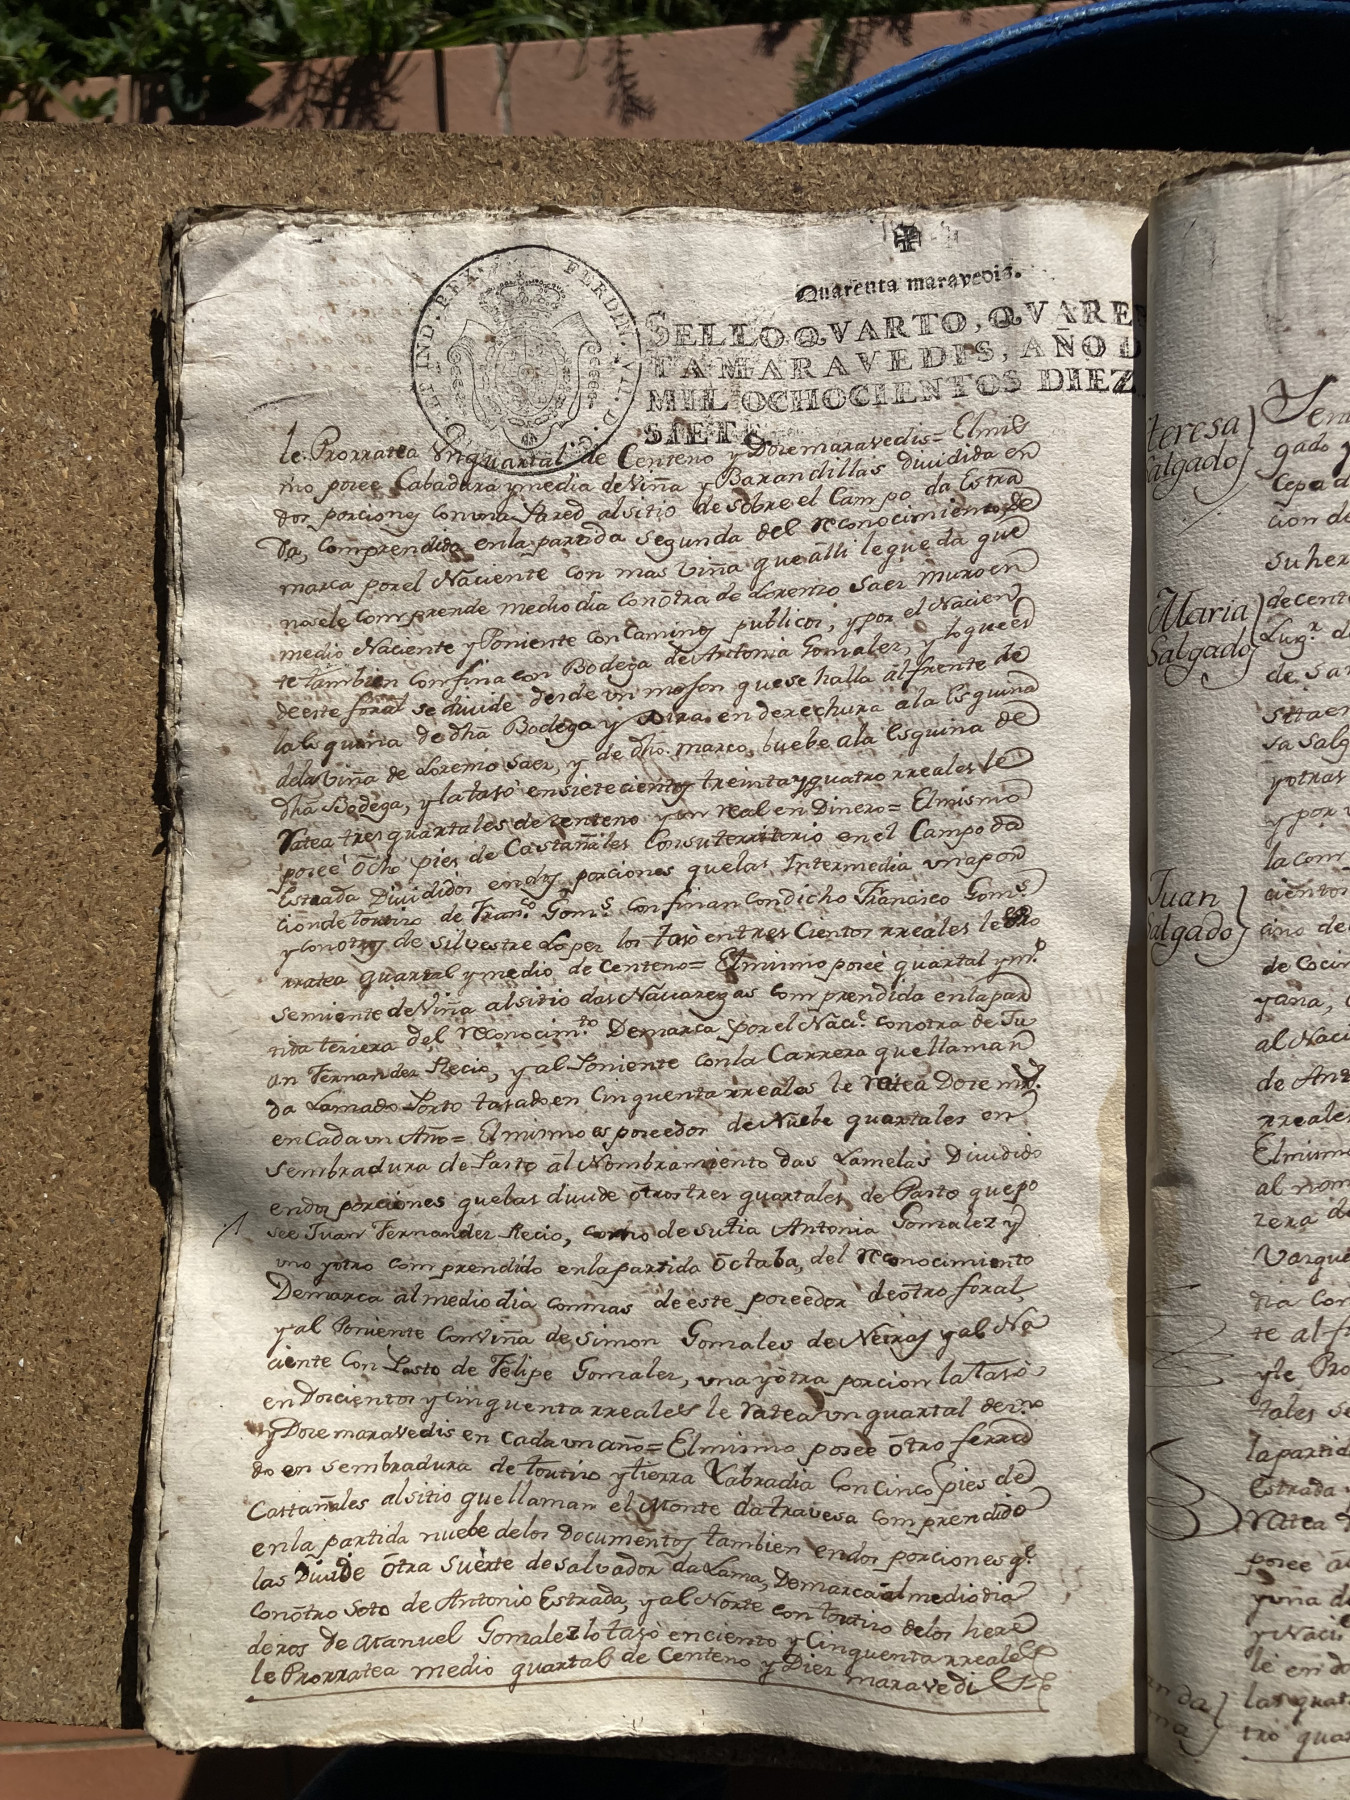 Quarenta maravedis.
HISP. ET IND. REX. FERDIN. VII. D. G.
SELLO QVARTO, QVAREN
TA MARAVEDIS, AÑO D
MIL OCHOCIENTOS DIEZ
SIETE.
le Prorratea Un quartal de Centeno y Doze maravedis = El mis
mo posee Cabadura y media de Viña y Barandillas dividida en
dos porciones con una Pared al sitio de sobre el Campo da Estra
da, comprendida en la partida segunda del reconocimiento, de
marca por el Naciente con mas viña que alli le queda que
no se comprende medio dia con ótra de Lorenzo Saez muro en
medio Naciente y Poniente con Caminos publicos, y por el Nacien
te tambien confina con Bodega de Antonia Gomzalez, y lo que es
de este foral se divide desde un mojon que se halla al frente de
la Esquina de dha Bodega y tira en derechura a la Esquina
de la viña de Lorenzo Saez, y de dho marco buebe a la Esquina de
dha Bodega, y la tasó en siete cientos treinta y quatro rreales le
ratea tres quartales de zenteno y un real en Dinero = El mismo
poseé ócho pies de Castañales con su territorio en el Campo da
Estrada Divididos en dos porciones que las Intermedia una por
cion de toutizo de Fran.co Gom.s confinan con dicho Francisco Gom.s
y con ótros de Silvestre Lopez los tasó en tres Cientos rreales le Pro
rratea quartal y medio de Centeno = El mismo poseé quartal y m.o
semiente de Viña al sitio das Navarezas comprendida en la par
tida terzera del reconocim.to Demarca por el Naci.e con otra de Ju
an Fernandez Recio, y al Poniente con la Carrera que llaman
da Lamado Porto tasado en Cinquenta rreales le ratea Doze mrs.
en Cada un Año = El mismo es poseedor de Nuebe quartales en
sembradura de Pasto al Nombramiento das Lamelas Dividido
en dos porciones que las divide ótros tres quartales de Pasto que po
see Juan Fernandez Recio, como de su tia Antonia Gomzalez y
uno y otro comprendido en la partida Óctaba, del reconocimiento
Demarca al medio dia con mas de este poseedor de ótro foral,
y al Poniente con viña de Simon Gomzales de Neiras y al Na
ciente con Pasto de Felipe Gomzalez, una y otra porcion la tasó
en Doscientos y cinquenta rreales le ratea un quartal de
y Doze maravedis en cada un año = El mismo posee ótro ferra
do en sembradura de toutizo y tierra Labradia Con cinco pies de
Castañales al sitio que llaman el Monte da travesa comprendido
en la partida nuebe de los documentos tambien en dos porciones q.e
las Divide ótra Suerte de Salvador da Lama, Demarca al medio dia
con ótro Soto de Antonio Estrada, y al Norte con toutizo de los here
deros de Manuel Gomzalez lo tasó en ciento y Cinquenta rreales
le Prorratea medio quartal de Centeno y Diez maravedis
teresa
Salgado
Maria
Salgado
Juan
Salgado
gado
Cepa d
cion de
su her
de cent
Lug.r d
de San
sita en
sa Salg
y otras
y por
la com
cientos
de Cocin
y ana,
al Naci
de Ant
rreales
El mismo
al nom
zera de
Varque
dia con
te al f
y le Pro
tales se
la partid
Estrada
ratea
posee
y viña d
y Naci
le en do
las quat
tro quar